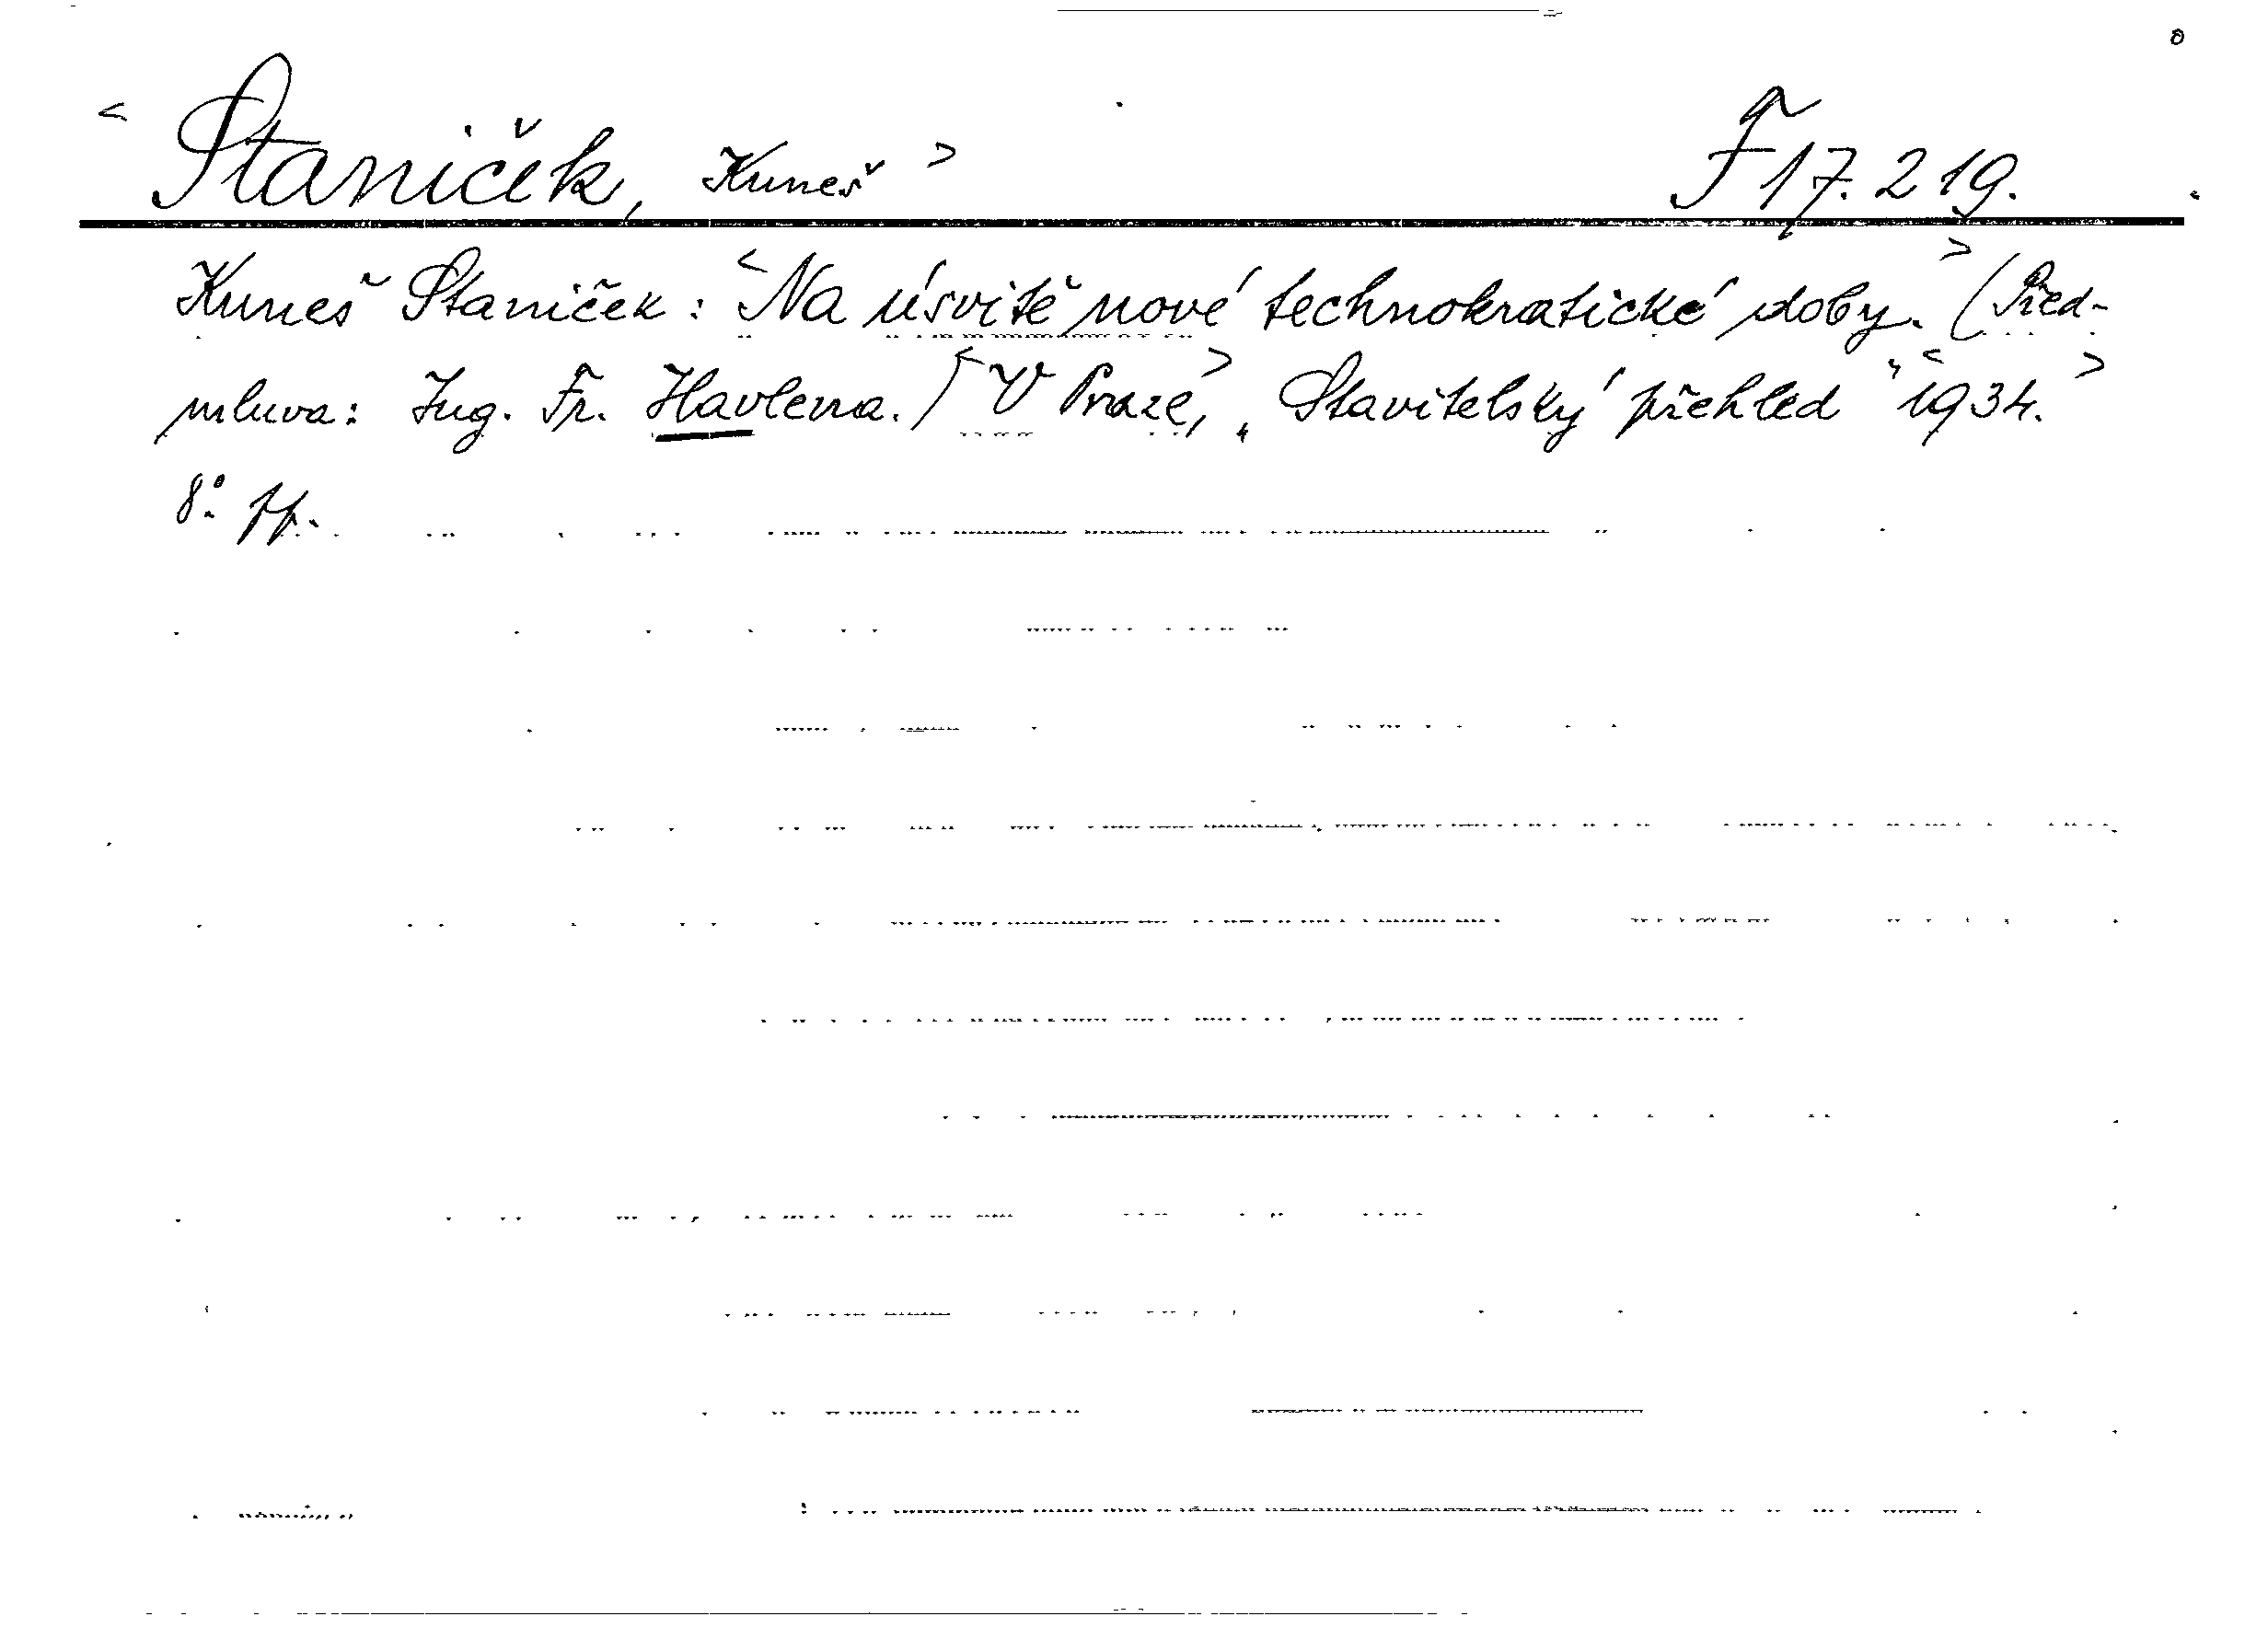 < Staniček, Kuneš > F 17.219.
Kuneš Staniček: <Na úsvitě nové technokratické doby.> (Před-
mluva: Ing. Fr. Havlena.) <V Praze,> „Stavitelský přehled" <1934.>
8°.